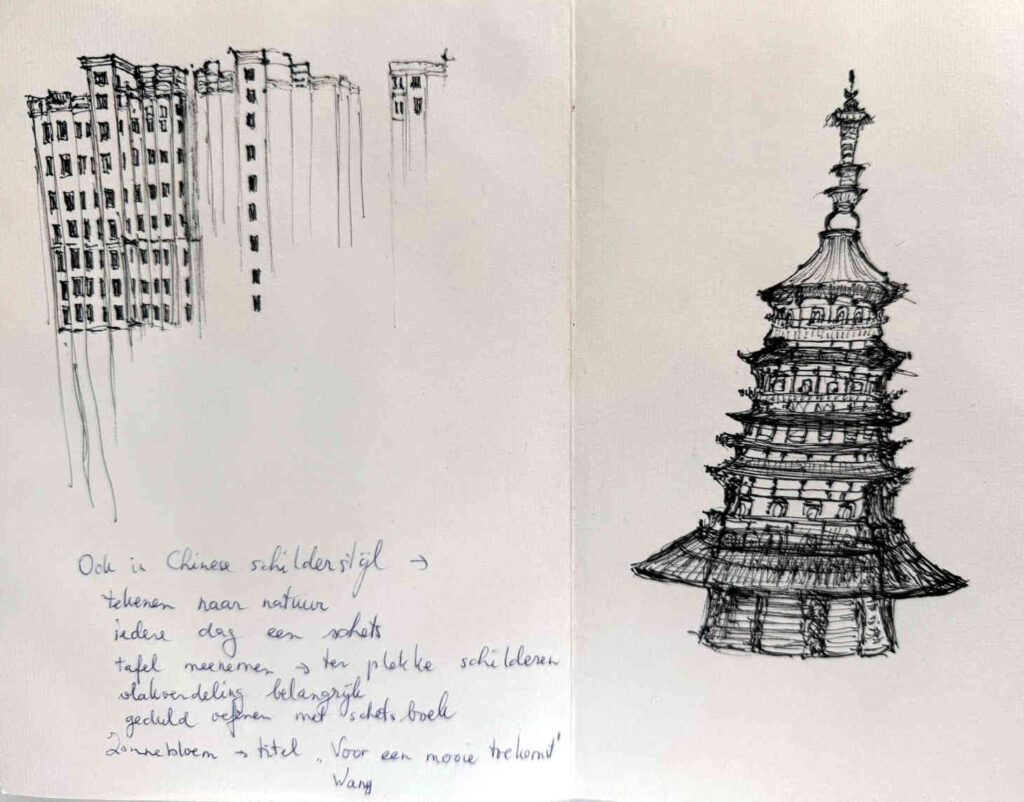 Ook in Chinese schilderstijl →
tekenen naar natuur
iedere dag een schets
tafel meenemen → ter plekke schilderen
vlakverdeling belangrijk
geduld oefenen met schetsboek
Zonnebloem → titel „Voor een mooie
Wang